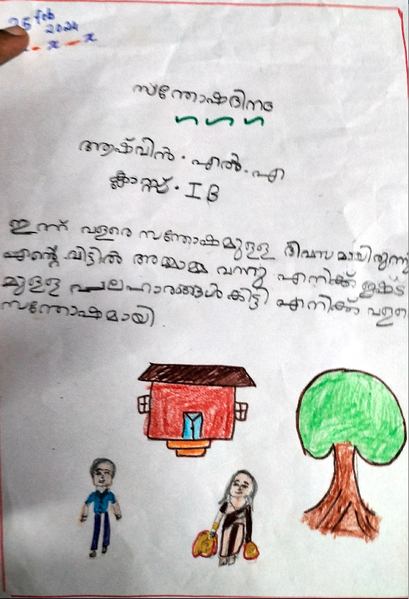 25 Feb
2024
x x
സന്തോഷദിനം
ആഷ്‌വിൻ . എൽ . എ
ക്ലാസ്സ് . I B
ഇന്ന് വളരെ സന്തോഷമുള്ള ദിവസമായിരുന്നു
എൻ്റെ വീട്ടിൽ അമ്മാമ്മ വന്നു എനിക്ക് ഇഷ്ട
മുള്ള പലഹാരങ്ങൾ കിട്ടി എനിക്ക് വളരെ
സന്തോഷമായി